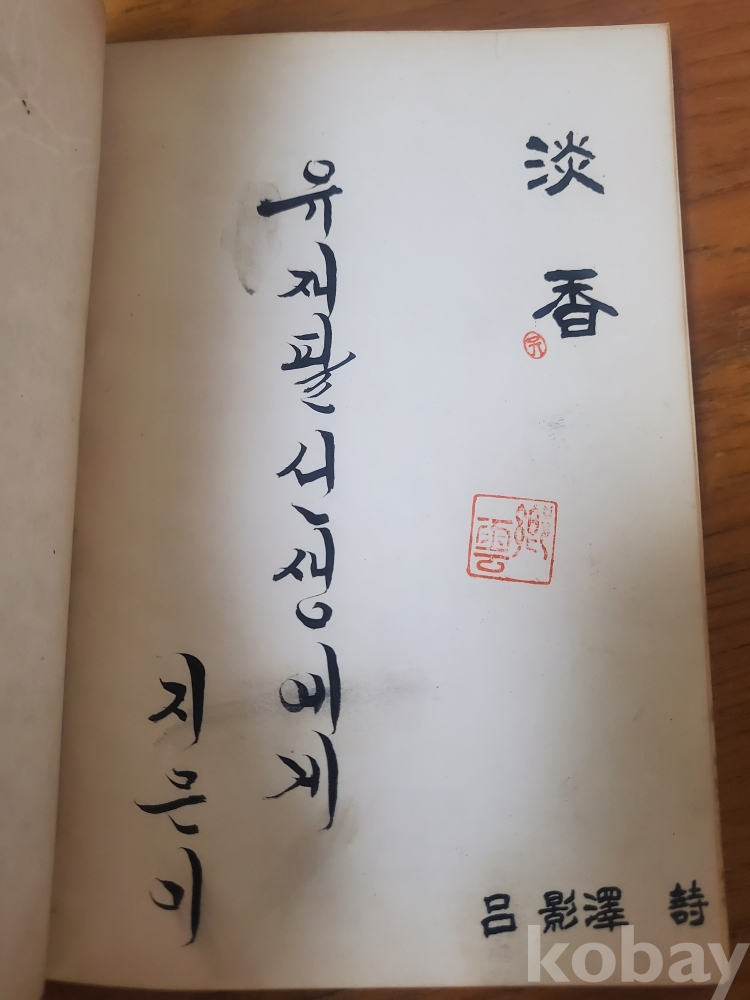 淡香
유재필 선생에게
지은이
呂影澤 詩